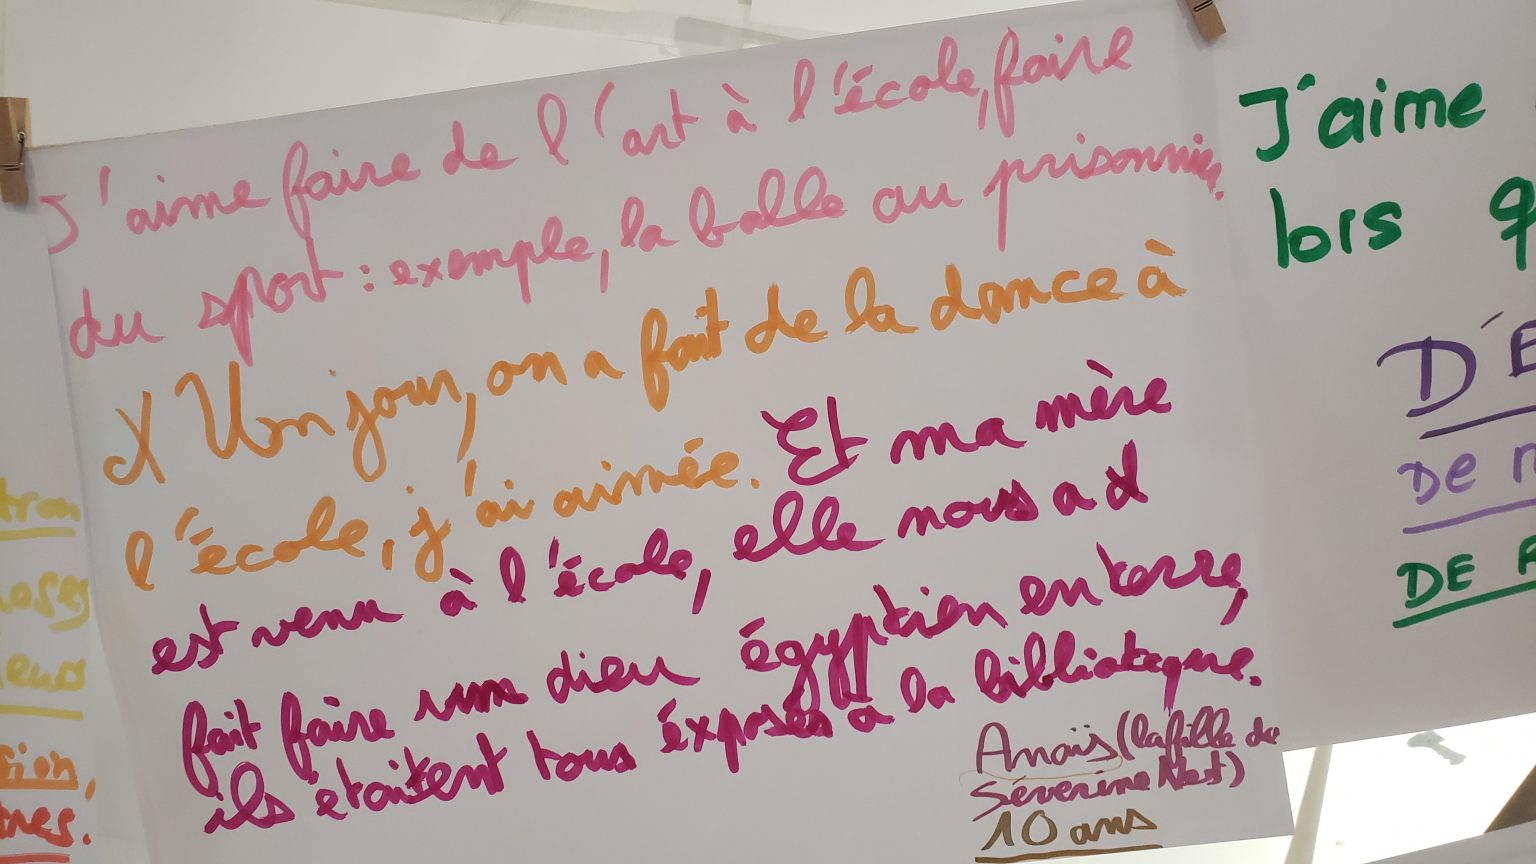 J'aime faire de l'art à l'école, faire
du sport : exemple, la balle au prisonnier.
Un jour, on a fait de la dance à
l'école, j'ai aimée. Et ma mère
est venu à l'école, elle nous a
fait faire un dieu égyptien en terre,
ils étaitent tous éxposés à la biblioteque.
Anaïs (la fille de
Séverine Nest)
10 ans
J'aime
lors q
D'E
DE
DE
tron
oses
leurs
sien,
tres.